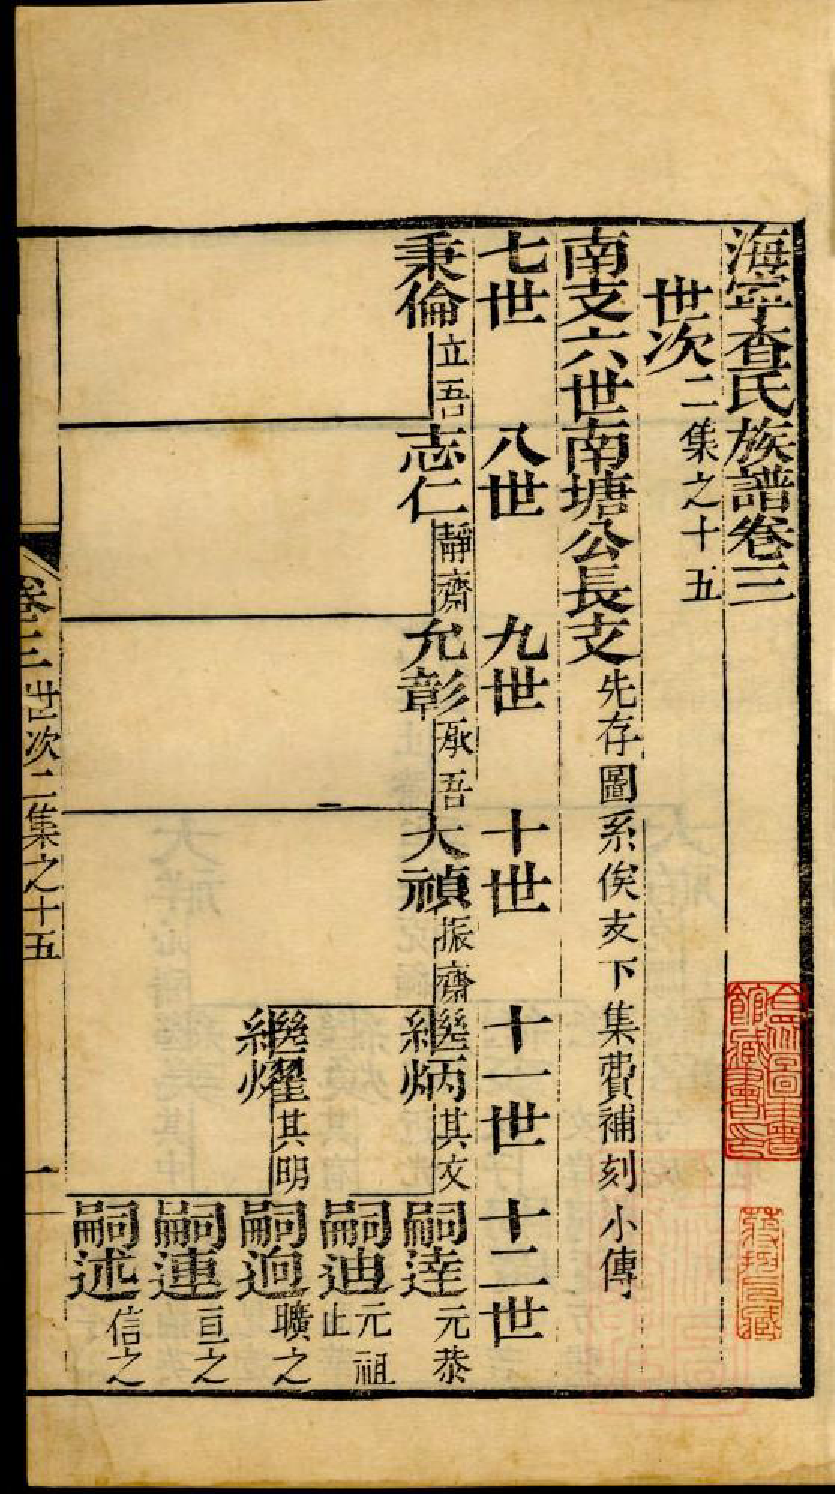 海寧查氏族譜卷三
世次二集之十五
南支六世南塘公長支先存圖系俟支下集費補刻小傳
七世 八世 九世 十世 十一世 十二世
秉倫立吾 志仁靜齋 允彰承吾 大禎振齋 繼炳其文 嗣達元恭
嗣迪元祖止
繼燿其明 嗣迥曠之
嗣連亘之
嗣述信之
卷三 世次二集之十五 一